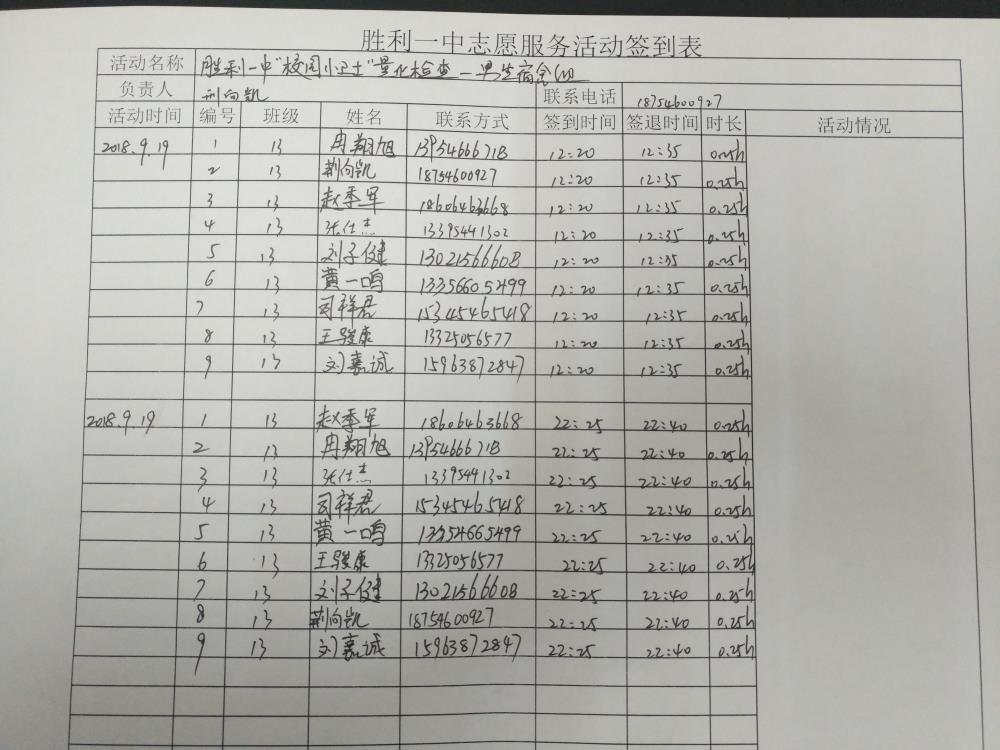 胜利一中志愿服务活动签到表
活动名称 胜利一中"校园小卫士"量化检查—男生宿舍
负责人 荆向凯 联系电话 18754600927
活动时间 编号 班级 姓名 联系方式 签到时间 签退时间 时长 活动情况
2018.9.19 1 13 冉翔旭 12:20 12:35 0.25h
2 13 荆向凯 18754600927 12:20 12:35 0.25h
3 13 赵季军 18606463668 12:20 12:35 0.25h
4 13 张仕杰 13395441302 12:20 12:35 0.25h
5 13 刘子健 13021566608 12:20 12:35 0.25h
6 13 黄一鸣 13356605499 12:20 12:35 0.25h
7 13 司祥君 15345465418 12:20 12:35 0.25h
8 13 王骏康 13325056577 12:20 12:35 0.25h
9 13 刘嘉诚 15963872847 12:20 12:35 0.25h
2018.9.19 1 13 赵季军 18606463668 22:25 22:40 0.25h
2 13 冉翔旭 22:25 22:40 0.25h
3 13 张仕杰 13395441302 22:25 22:40 0.25h
4 13 司祥君 15345465418 22:25 22:40 0.25h
5 13 黄一鸣 22:25 22:40 0.25h
6 13 王骏康 13325056577 22:25 22:40 0.25h
7 13 刘子健 13021566608 22:25 22:40 0.25h
8 13 荆向凯 18754600927 22:25 22:40 0.25h
9 13 刘嘉诚 15963872847 22:25 22:40 0.25h